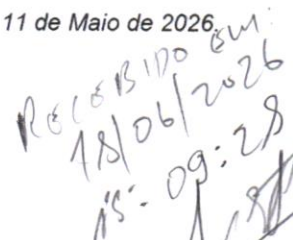 11 de Maio de 2026.
RECEBIDO EM:
18/06/2026
ÀS: 09:28